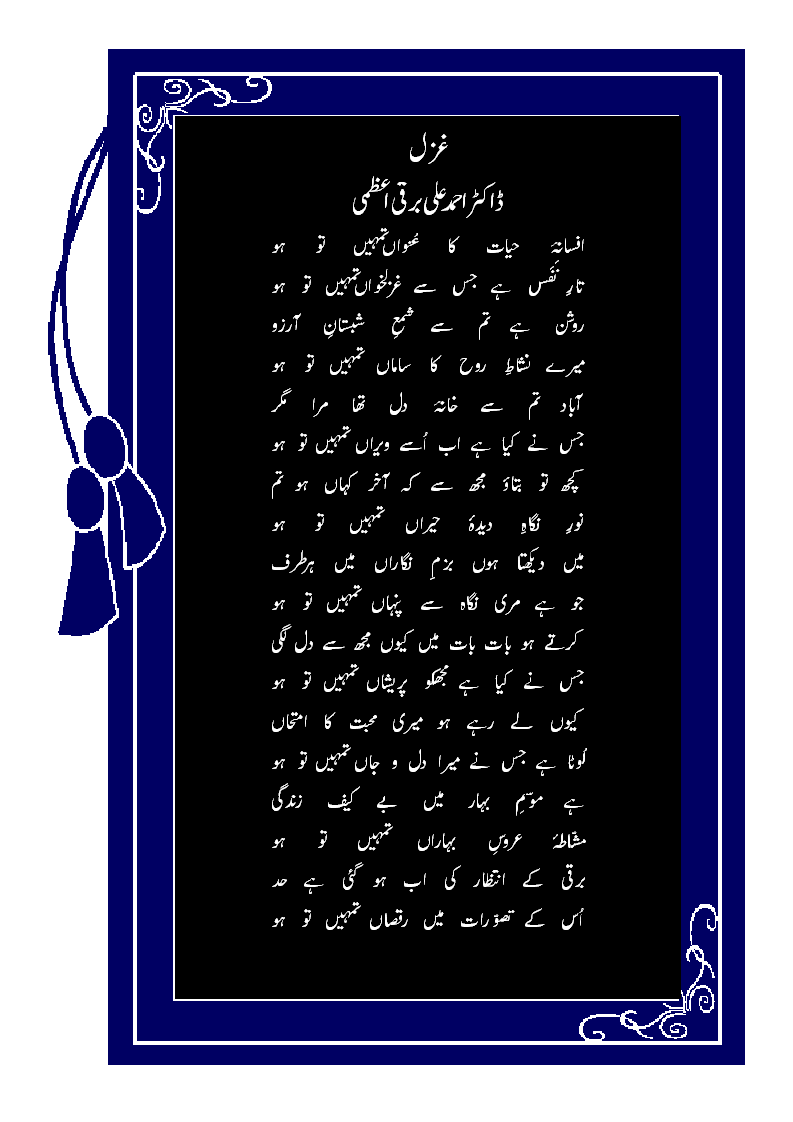 غزل
ڈاکٹر احمد علی برقی اعظمی
افسانۂ حیات کا عُنواں تمہیں تو ہو
تارِ نَفَس ہے جس سے غزلخواں تمہیں تو ہو
روشن ہے تم سے شمعِ شبستانِ آرزو
میرے نشاطِ روح کا ساماں تمہیں تو ہو
آباد تم سے خانۂ دل تھا مرا مگر
جس نے کیا ہے اب اُسے ویراں تمہیں تو ہو
کچھ تو بتاؤ مجھ سے کہ آخر کہاں ہو تم
نورِ نگاہِ دیدۂ حیراں تمہیں تو ہو
میں دیکھتا ہوں بزمِ نگاراں میں ہرطرف
جو ہے مری نگاہ سے پنہاں تمہیں تو ہو
کرتے ہو بات بات میں کیوں مجھ سے دل لگی
جس نے کیا ہے مجھکو پریشاں تمہیں تو ہو
کیوں لے رہے ہو میری محبت کا امتحاں
لُوٹا ہے جس نے میرا دل و جاں تمہیں تو ہو
ہے موسمِ بہار میں بے کیف زندگی
مشّاطۂ عروسِ بہاراں تمہیں تو ہو
برقی کے انتظار کی اب ہو گئی ہے حد
اُس کے تصوّرات میں رقصاں تمہیں تو ہو